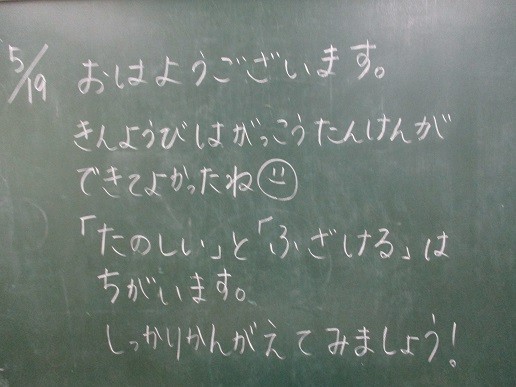 5/19 おはようございます。
きんようびはがっこうたんけんが
できてよかったね
「たのしい」と「ふざける」は
ちがいます。
しっかりかんがえてみましょう!